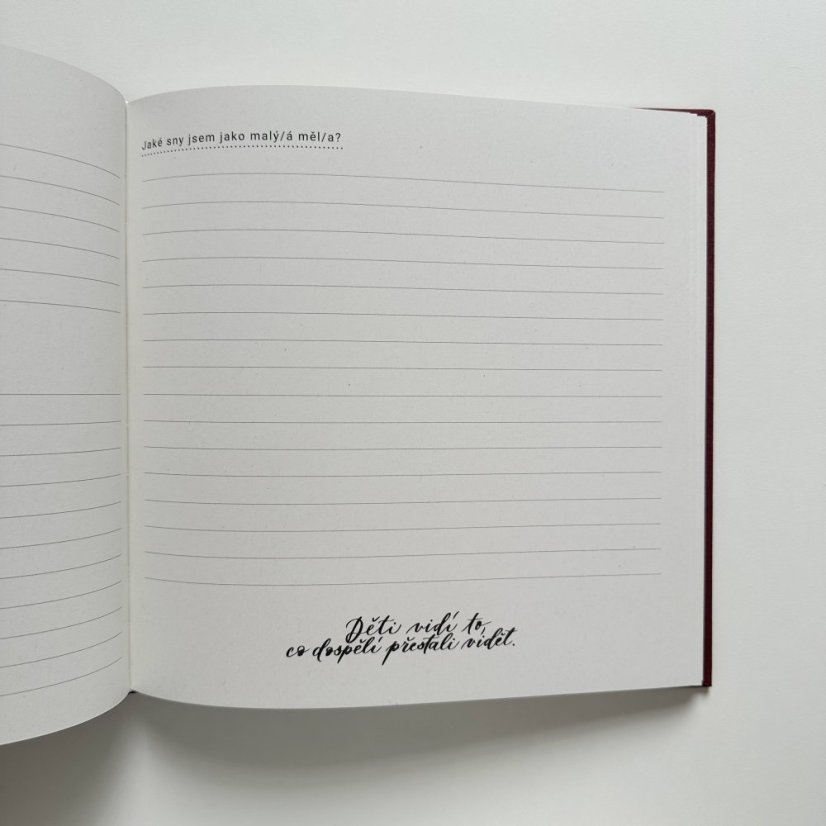 Jaké sny jsem jako malý/á měl/a?
Děti vidí to,
co dospělí přestali vidět.